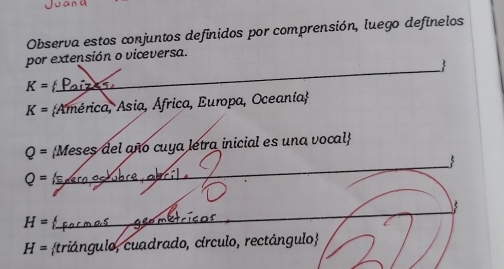 Juana
Observa estos conjuntos definidos por comprensión, luego defínelos
por extensión o viceversa.
K = { Paizes. }
K = {América, Asia, África, Europa, Oceanía}
Q = {Meses del año cuya letra inicial es una vocal}
Q = {Enero octubre, abril. }
H = { formas geometricas. }
H = {triángulo, cuadrado, círculo, rectángulo}